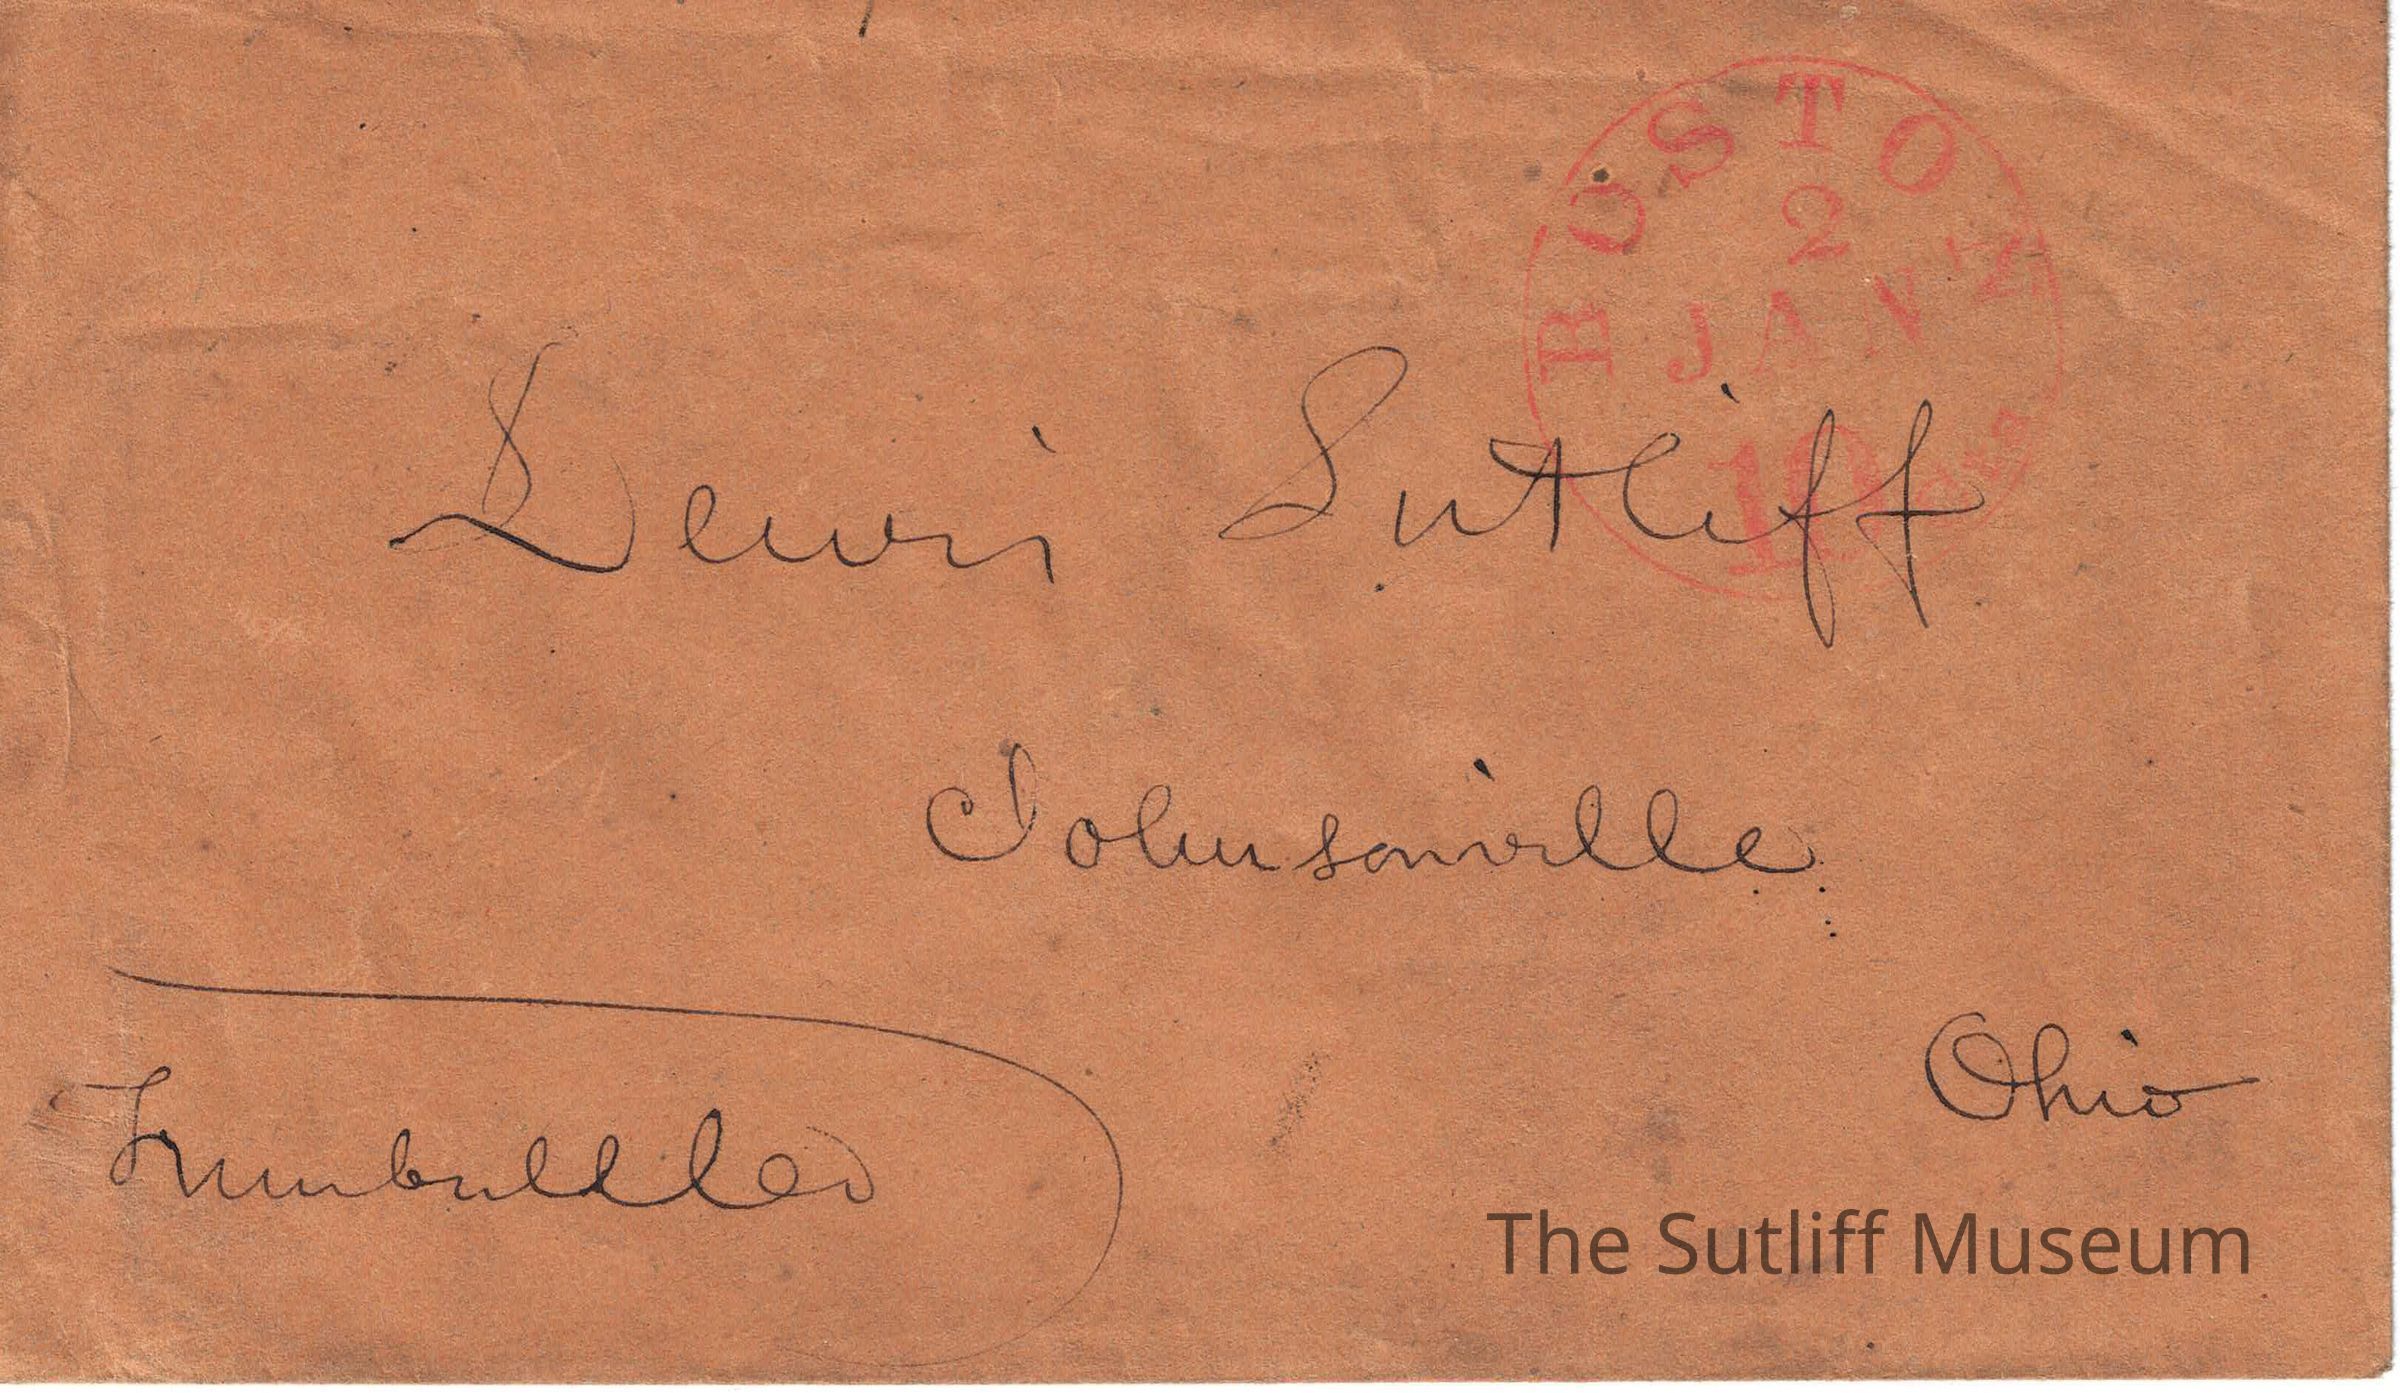 BOSTON
2
JAN
10 cts
Lewis Sutliff
Johnsonville
Ohio
Trumbull Co
The Sutliff Museum